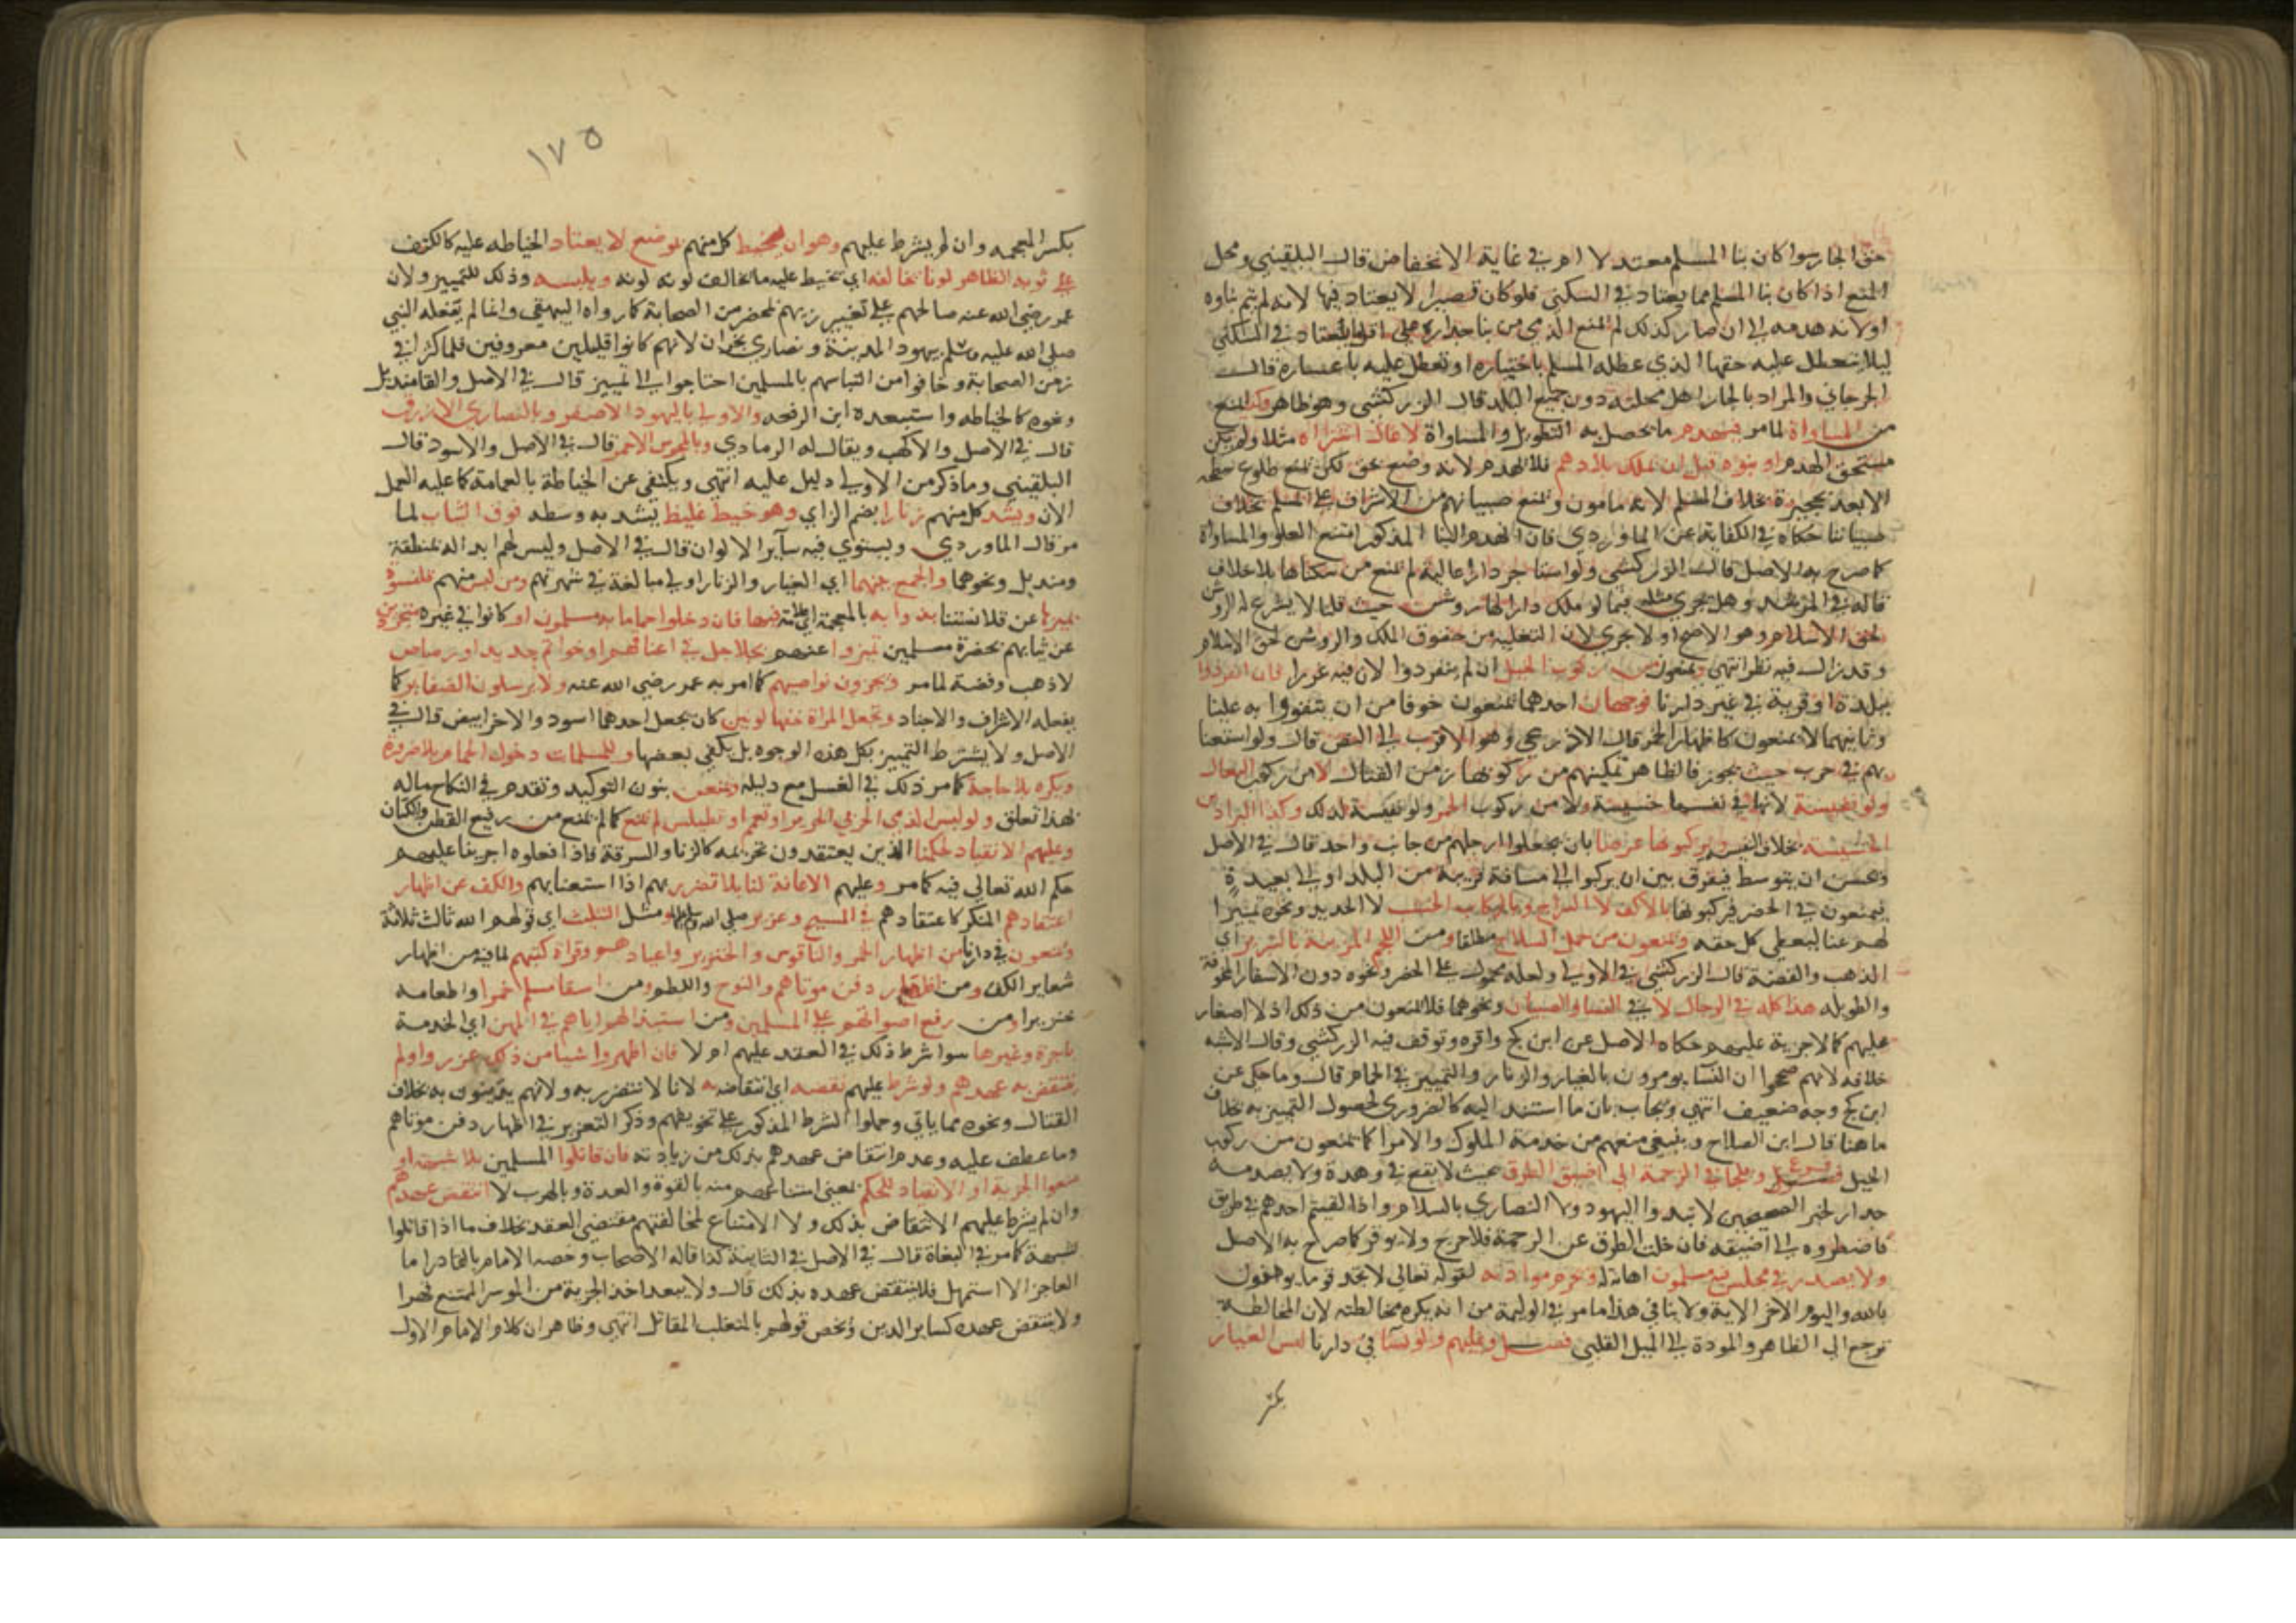 حق الجار سوا كان بنا المسلم معتدلا ام في غاية الانخفاض قال البلقيني ومحل
المنع اذا كان بنا المسلم مما يعتاد في السكنى فلو كان قصيرا لا يعتاد فيها لانه لم يتم بناوه
او لانه هدمه الى ان صار كذلك لم يمنع الذمي من بنا جداره على اقل ما يعتاد في السكنى
ليلا يتعطل عليه حقها الذي عطله المسلم باختياره او تعطل عليه باعساره قال
الجرجاني والمراد بالجار اهل محلته دون جميع البلد قال الزركشي وهو ظاهر وكذا يمنع
من المساواة لما مر فيهدم ما يحصل به التطويل والمساواة لا عال اشتراه مثلا ولم يكن
مستحق الهدم او بنوه قبل ان تملك بلادهم فلا يهدم لانه وضع بحق لكن يمنع طلوع سطحه
الا بعد تحجيره بخلاف المسلم لانه مامون ويمنع صبيانهم من الاشراف على المسلم بخلاف
صبياننا حكاه في الكفاية عن الماوردي فان انهدم البنا المذكور امتنع العلو والمساواة
كما صرح به الاصل قال الزركشي ولو استاجر دارا عالية لم يمنع من سكناها بلا خلاف
قاله في المرشد وهل يجري مثله فيما لو ملك دارا لها روشن حيث قلنا لا يشرع له الروشن
لحق الاسلام وهو الاصح او لا يجري لان التعلية من حقوق الملك والروشن لحق الاسلام
وقد زال فيه نظر انتهى ويمنعون من ركوب الخيل ان لم ينفردوا لان فيه عزرا فان انفردوا
ببلدة او قرية في غير دارنا فوجهان احدهما يمنعون خوفا من ان يتقووا به علينا
وثانيهما لا يمنعون كاظهار الخمر قال الاذرعي وهو الاقرب الى النص قال ولو استعنا
بهم في حرب حيث يجوز فالظاهر تمكينهم من ركوبها زمن القتال لا من ركوب البغال
ولو نفيسة لانها في نفسها خسيسة ولا من ركوب الحمر ولو نفيسة لذلك وكذا البراذين
الخسيسة بخلاف النفيسة ويركبونها عرضا بان يجعلوا ارجلهم من جانب واحد قال في الاصل
ويحسن ان يتوسط فيفرق بين ان يركبوا الى مسافة قريبة من البلد او الى بعيدة
فيمنعون في الحضر فيركبونها بالاكف لا السراج وبالركاب الخشب لا الحديد ونحوه تمييزا
لهم عنا ليعطي كل حقه ويمنعون من حمل السلاح مطلقا ومن اللجم المزينة بالتبر اي
الذهب والفضة قال الزركشي في الاولى ولعله محمول على الحضر ونحوه دون الاسفار المخوفة
والطويلة هذا كله في الرجال لا في النسا والصبيان ونحوهما فلا يمنعون من ذلك اذ لا صغار
عليهم كما لا جزية عليهم حكاه الاصل عن ابن كج واقره وتوقف فيه الزركشي وقال الاشبه
خلافه لانهم صححوا ان النسا يومرون بالغيار والزنار والتمييز في الحمام قال وما حكى عن
ابن كج وجه ضعيف انتهى ويجاب بان ما استند اليه كالضروري لحصول التمييز به بخلاف
ما هنا قال ابن الصلاح وينبغي منعهم من خدمة الملوك والامرا كما يمنعون من ركوب
الخيل فرع ويلجا في الزحمة الى اضيق الطرق بحيث لا يقع في وهدة ولا يصدمه
جدار لخبر الصحيحين لا تبدوا اليهود ولا النصارى بالسلام واذا لقيتم احدهم في طريق
فاضطروه الى اضيقه فان خلت الطرق عن الزحمة فلا حرج ولا يوقر كما صرح به الاصل
ولا يصدر في مجلس فيه مسلمون اهانة له وتحرم موادته لقوله تعالى لا تجد قوما يومنون
بالله واليوم الاخر الاية ولا ينافي هذا ما مر في الوليمة من انه يكره مخالطته لان المخالطة
ترجع الى الظاهر والمودة الى الميل القلبي فصل وعليهم ولو نسا في دارنا لبس الغيار
بكسر
١٧٥
بكسر المعجمة وان لم يشرط عليهم وهو ان يخيط كل منهم بموضع لا يعتاد الخياطة عليه كالكتف
على ثوبه الظاهر لونا يخالفه اي يخيط عليه ما يخالف لونه لونه ويلبسه وذلك للتمييز ولان
عمر رضي الله عنه صالحهم على تغيير زيهم بمحضر من الصحابة كما رواه البيهقي وانما لم يفعله النبي
صلى الله عليه وسلم بيهود المدينة ونصارى نجران لانهم كانوا قليلين معروفين فلما كثروا في
زمن الصحابة وخافوا من التباسهم بالمسلمين احتاجوا الى تمييز قال في الاصل والقا منديل
ونحوه كالخياطة واستبعده ابن الرفعه والاولى باليهود الاصفر وبالنصارى الازرق
قال في الاصل والاكهب ويقال له الرمادي وبالمجوس الاحمر قال في الاصل والاسود قال
البلقيني وما ذكر من الاولى لا دليل عليه انتهى ويكتفى عن الخياطة بالعمامة كما عليه العمل
الان ويشد كل منهم زنارا بضم الزاي وهو خيط غليظ يشد به وسطه فوق الثياب لما
مر قال الماوردي ويستوي فيه ساير الالوان قال في الاصل وليس لهم ابداله بمنطقة
ومنديل ونحوهما والجمع بينهما اي الغيار والزنار اولى مبالغة في شهرتهم ومن لبس منهم قلنسوة
يميزها عن قلانسنا بذوابة بالمعجمة اي علامة فيها فان دخلوا حماما به مسلمون او كانوا في غيره متجردين
عن ثيابهم بحضرة مسلمين تميزوا عنهم بجلاجل في اعناقهم او خواتم حديد او رصاص
لا ذهب وفضة لما مر ويجزون نواصيهم كما امر به عمر رضي الله عنه ولا يرسلون الضفاير كما
يفعله الاشراف والاجناد وتجعل المراة خفها لونين كان يجعل احدهما اسود والاخر ابيض قال في
الاصل ولا يشترط التمييز بكل هذه الوجوه بل يكفي بعضها وللمسلمات دخول الحمام بلا ضرورة
ويكره بلا حاجة كما مر ذلك في الغسل مع دليله ويمنعن بنون التوكيد وتقدم في النكاح ماله
بهذا تعلق ولو لبس الذمي الحرير او تعمم او تطيلس لم يمنع كما لم يمنع من رفيع القطن والكتان
وعليهم الانقياد لحكمنا الذين يعتقدون تحريمه كالزنا والسرقة فاذا فعلوه اجرينا عليهم
حكم الله تعالى فيه كما مر وعليهم الاعانة لنا بلا تضرر بهم اذا استعنا بهم والكف عن اظهار
اعتقادهم المنكر كاعتقادهم في المسيح وعزير صلى الله عليهما وسلم ومثل التثليث اي قولهم الله ثالث ثلاثة
ويمنعون في دارنا من اظهار الخمر والناقوس والخنزير واعيادهم وقراة كتبهم لما فيه من اظهار
شعاير الكفر ومن اظهار دفن موتاهم والنوح واللطم ومن اسقا مسلم خمرا واطعامه
خنزيرا ومن رفع اصواتهم على المسلمين ومن استبذالهم اياهم في المهن اي الخدمة
باجرة وغيرها سوا شرط ذلك في العقد عليهم ام لا فان اظهروا شيا من ذلك عزروا ولم
ينتقض به عهدهم ولو شرط عليهم نقضه اي انتقاضه به لانا لا نتضرر به ولانهم يتدينون به بخلاف
القتال ونحوه مما ياتي وحملوا الشرط المذكور على تخويفهم وذكر التعزير في اظهار دفن موتاهم
وما عطف عليه وعدم انتقاض عهدهم بذلك من زيادته فان قاتلوا المسلمين بلا شبهة او
منعوا الجزية او الانقياد للحكم بمعنى امتناعهم منه بالقوة والعدة وبالهرب لا انتقض عهدهم
وان لم يشرط عليهم الانتقاض بذلك ولا الامتناع لمخالفتهم مقتضى العقد بخلاف ما اذا قاتلوا
لشبهة كما مر في البغاة قال في الاصل في الثانية كذا قاله الاصحاب وخصه الامام بالقادر اما
العاجز الا استمهل فلا ينتقض عهده بذلك قال ولا يبعد اخذ الجزية من الموسر الممتنع قهرا
ولا ينتقض عهده كساير الديون ويخص قولهم بالمتغلب المقاتل انتهى وظاهر ان كلام الامام الاول